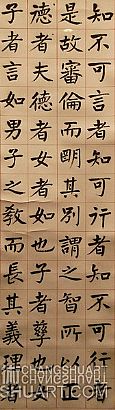 知不可言者知可行者知不可行
是故審倫而明其別謂之智所以正
德者夫者女如也子者孳也
子者言如男子之教而長其義理